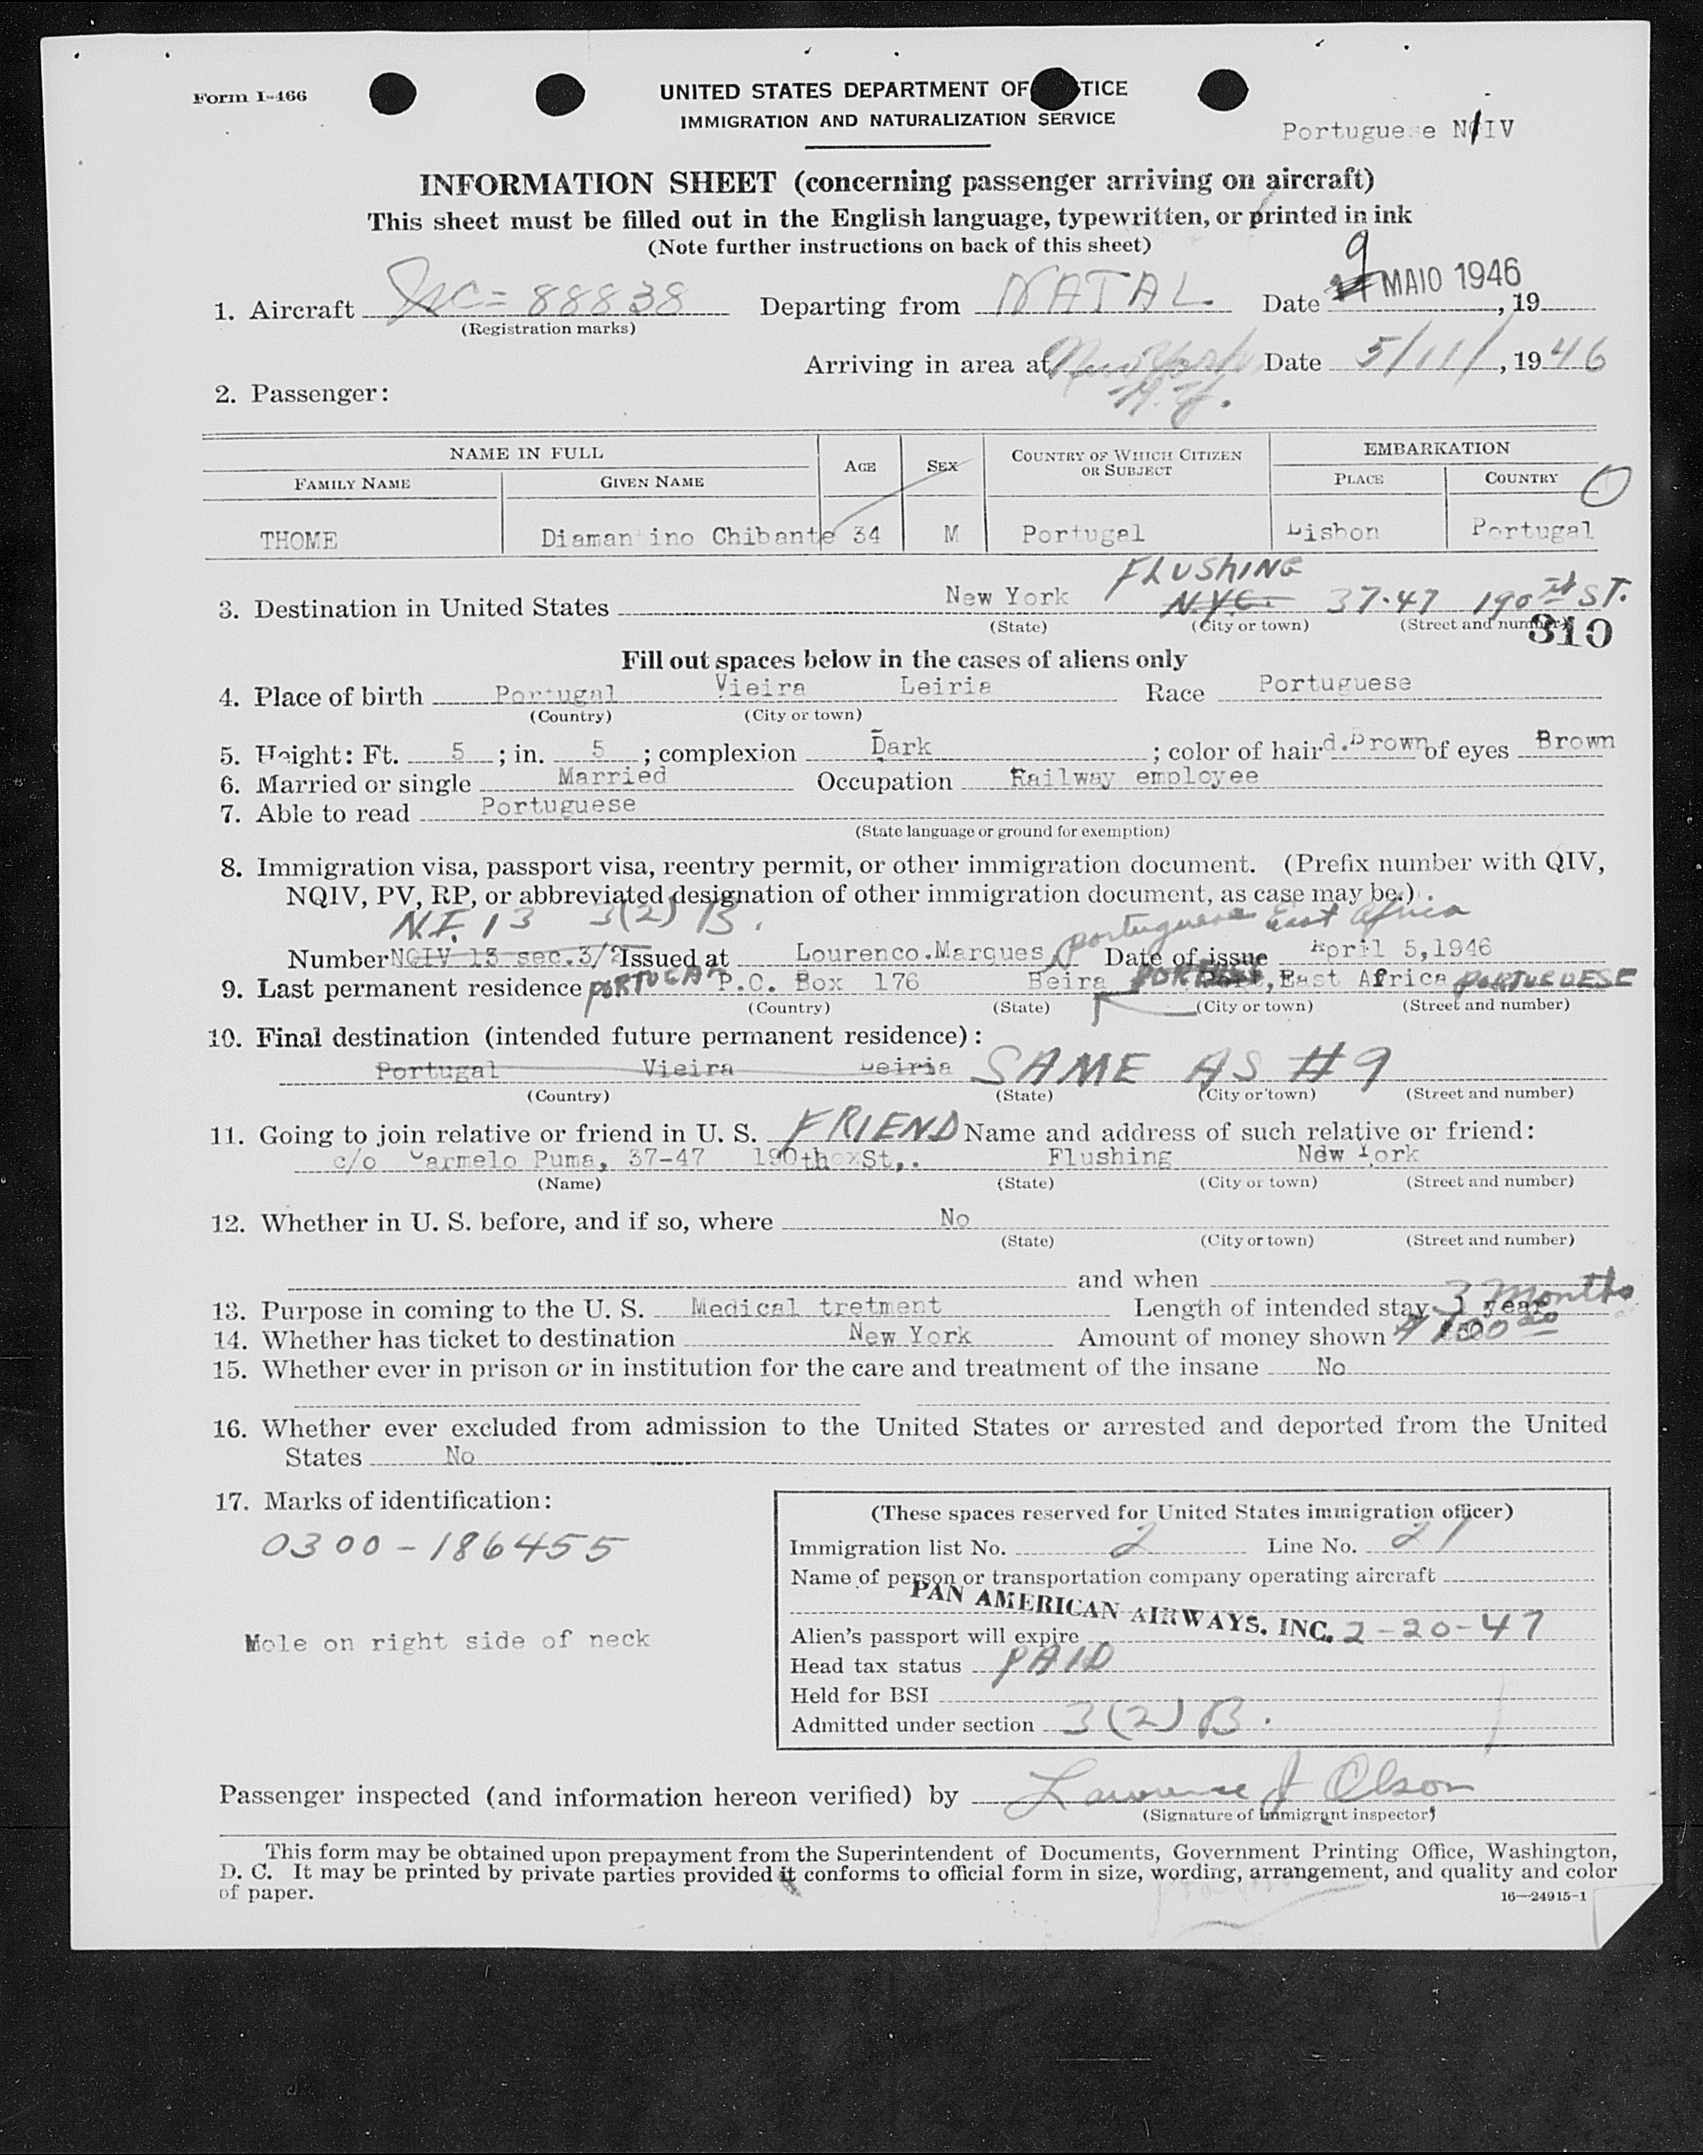 Form I-466
UNITED STATES DEPARTMENT OF TICE
IMMIGRATION AND NATURALIZATION SERVICE
Portuguese NIV
INFORMATION SHEET (concerning passenger arriving on aircraft)
This sheet must be filled out in the English language, typewritten, or printed in ink
(Note further instructions on back of this sheet)
1. Aircraft NC=88838 Departing from NATAL Date 9 MAIO 1946, 19
(Registration marks)
Arriving in area at New York N.Y. Date 5/11/, 1946
2. Passenger:
NAME IN FULL AGE SEX COUNTRY OF WHICH CITIZEN OR SUBJECT EMBARKATION
FAMILY NAME GIVEN NAME PLACE COUNTRY
THOME Diamantino Chibante 34 M Portugal Lisbon Portugal
3. Destination in United States New York FLUSHING N.Y.C. 37-47 190th ST.
(State) (City or town) (Street and number)
310
Fill out spaces below in the cases of aliens only
4. Place of birth Portugal Vieira Leiria Race Portuguese
(Country) (City or town)
5. Height: Ft. 5; in. 5; complexion Dark; color of hair d.Brown of eyes Brown
6. Married or single Married Occupation Railway employee
7. Able to read Portuguese
(State language or ground for exemption)
8. Immigration visa, passport visa, reentry permit, or other immigration document. (Prefix number with QIV,
NQIV, PV, RP, or abbreviated designation of other immigration document, as case may be.)
N.I. 13 3(2) B. portuguese East Africa
Number NQIV 13 sec.3/2 Issued at Lourenco.Marques Date of issue April 5,1946
9. Last permanent residence PORTUGAL P.O. Box 176 Beira, East Africa PORTUGUESE
(Country) (State) (City or town) (Street and number)
10. Final destination (intended future permanent residence):
Portugal Vieira Leiria SAME AS #9
(Country) (State) (City or town) (Street and number)
11. Going to join relative or friend in U. S. FRIEND Name and address of such relative or friend:
c/o Carmelo Puma, 37-47 190th St,. Flushing New York
(Name) (State) (City or town) (Street and number)
12. Whether in U. S. before, and if so, where No
(State) (City or town) (Street and number)
and when
13. Purpose in coming to the U. S. Medical tretment Length of intended stay 1 year 3 Months
14. Whether has ticket to destination New York Amount of money shown
15. Whether ever in prison or in institution for the care and treatment of the insane No
16. Whether ever excluded from admission to the United States or arrested and deported from the United
States No
17. Marks of identification:
0300-186455
Mole on right side of neck
(These spaces reserved for United States immigration officer)
Immigration list No. 2 Line No. 21
Name of person or transportation company operating aircraft
PAN AMERICAN AIRWAYS, INC.
Alien's passport will expire 2-20-47
Head tax status PAID
Held for BSI
Admitted under section 3(2)B.
Passenger inspected (and information hereon verified) by Lawrence J Olson
(Signature of immigrant inspector)
This form may be obtained upon prepayment from the Superintendent of Documents, Government Printing Office, Washington,
D. C. It may be printed by private parties provided it conforms to official form in size, wording, arrangement, and quality and color
of paper.
16—24915-1